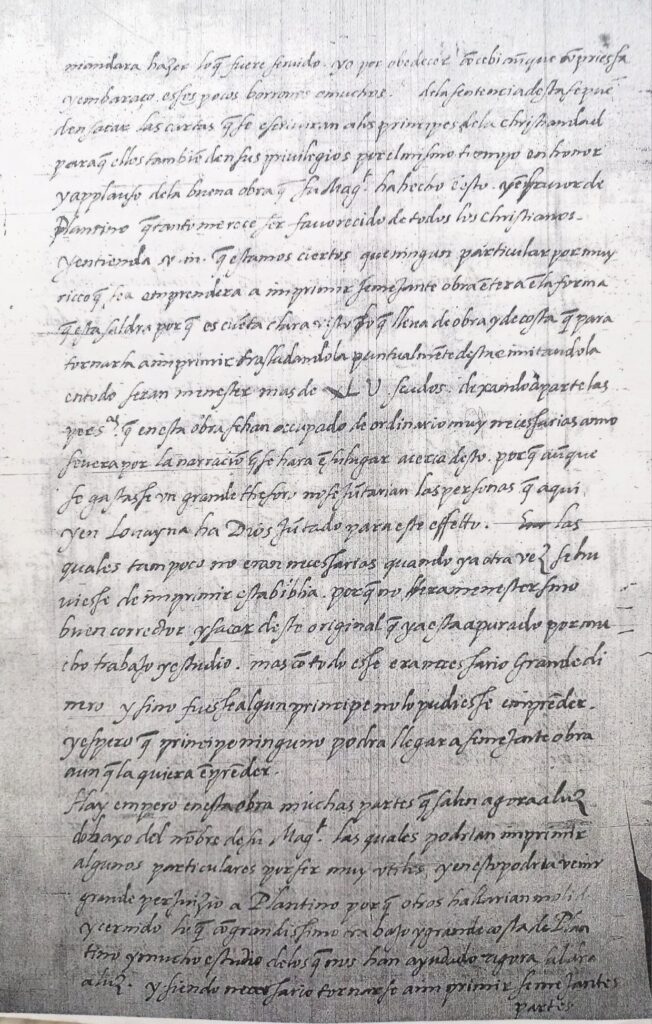 mandara hazer loq̃ fuere seruido. yo por obedecer cõcebi aũque cõ priessa
y embaraço. essos pocos borrones o muchos. dela sentencia desta se puẽ
den sacar las cartas q̃ se escriuiran alos principes dela christiandad
paraq̃ ellos tambiẽ den sus priuilegios por el mismo tiempo en honor
y applauso dela buena obra q̃ su Mag.t ha hecho ẽ esto. y en fauor de
Plantino q̃ tanto merece ser fauorecido de todos los christianos.
y entienda v. m. q̃ estamos ciertos que ningun particular por muy
ricco q̃ sea emprendera a imprimir semejante obra ẽtera ẽ la forma
q̃ esta saldra porq̃ es cuẽta clara y lleua de obra y de costa q̃ para
tornarla a imprimir trasladandola puntualmẽte desta e imitandola
en todo seran menester mas de xL U scudos. dexando aparte las
pers.as q̃ en esta obra se han occupado de ordinario muy necessarias como
se vera por la narraciõ q̃ se hara ẽ su lugar acerca desto. porq̃ aũque
se gastasse vn grande thesoro no se jũtarian las personas q̃ aqui
y en Louayna ha Dios jũtado para este effetto. las
quales tampoco no eran necessarias quando ya otra vez se hu
uiesse de imprimir esta biblia. porq̃ no era menester sino
buen corrector y sacar deste original q̃ ya esta apurado por mu
cho trabajo y estudio. mas cõ todo esse era necessario grande di
nero y sino fuesse algun principe no lo pudiesse emprẽder.
y espero q̃ principe ninguno podra llegar a semejante obra
aun q̃ la quiera ẽprẽder.
Hay empero en esta obra muchas partes q̃ salen agora a luz
debaxo del nõbre de su Mag.t las quales podrian imprimir
algunos particulares por ser muy vtiles. y en esto podria venir
grande perjuizio a Plantino porq̃ otros hallarian molid
y cernido lo q̃ cõ grandissimo trabajo y grande costa de Plan
tino y mucho estudio delos q̃ nos han ayudado agora saldra
a luz. y siendo necessario tornarse a imprimir semejantes
partes